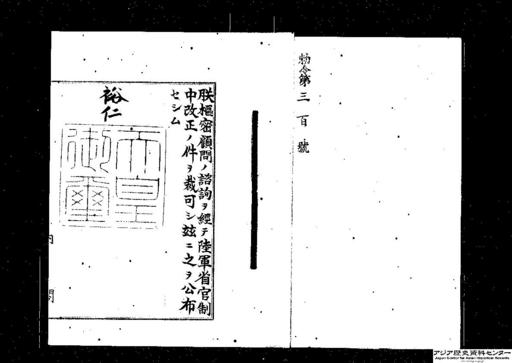 勅令第三百號
朕樞密顧問ノ諮詢ヲ經テ陸軍省官制
中改正ノ件ヲ裁可シ茲ニ之ヲ公布
セシム
裕仁
天皇
御璽
内閣
アジア歴史資料センター
Japan Center for Asian Historical Records